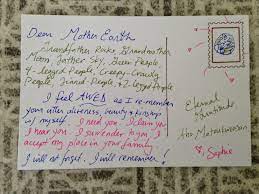 Dear Mother Earth
Grandfather Rocks, Grandmother
Moon, Father Sky, Green People,
4-legged People, Creepy-Crawly
People, Finned-People, & 2 legged People
I feel AWED as I remember
your utter aliveness, beauty & kinship
w/ myself. I need you. I claim you
I hear you. I surrender to you. I
accept my place in your family.
I will not forget. I will remember!
For
Sophie